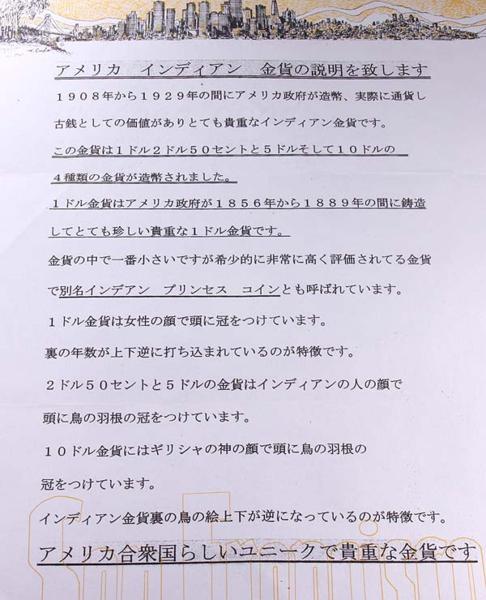 アメリカ　インディアン　金貨の説明を致します
１９０８年から１９２９年の間にアメリカ政府が造幣、実際に通貨し
古銭としての価値がありとても貴重なインディアン金貨です。
この金貨は１ドル２ドル５０セントと５ドルそして１０ドルの
４種類の金貨が造幣されました。
１ドル金貨はアメリカ政府が１８５６年から１８８９年の間に鋳造
してとても珍しい貴重な１ドル金貨です。
金貨の中で一番小さいですが希少的に非常に高く評価されてる金貨
で別名インデアン　プリンセス　コインとも呼ばれています。
１ドル金貨は女性の顔で頭に冠をつけています。
裏の年数が上下逆に打ち込まれているのが特徴です。
２ドル５０セントと５ドルの金貨はインディアンの人の顔で
頭に鳥の羽根の冠をつけています。
１０ドル金貨にはギリシャの神の顔で頭に鳥の羽根の
冠をつけています。
インディアン金貨裏の鳥の絵上下が逆になっているのが特徴です。
アメリカ合衆国らしいユニークで貴重な金貨です